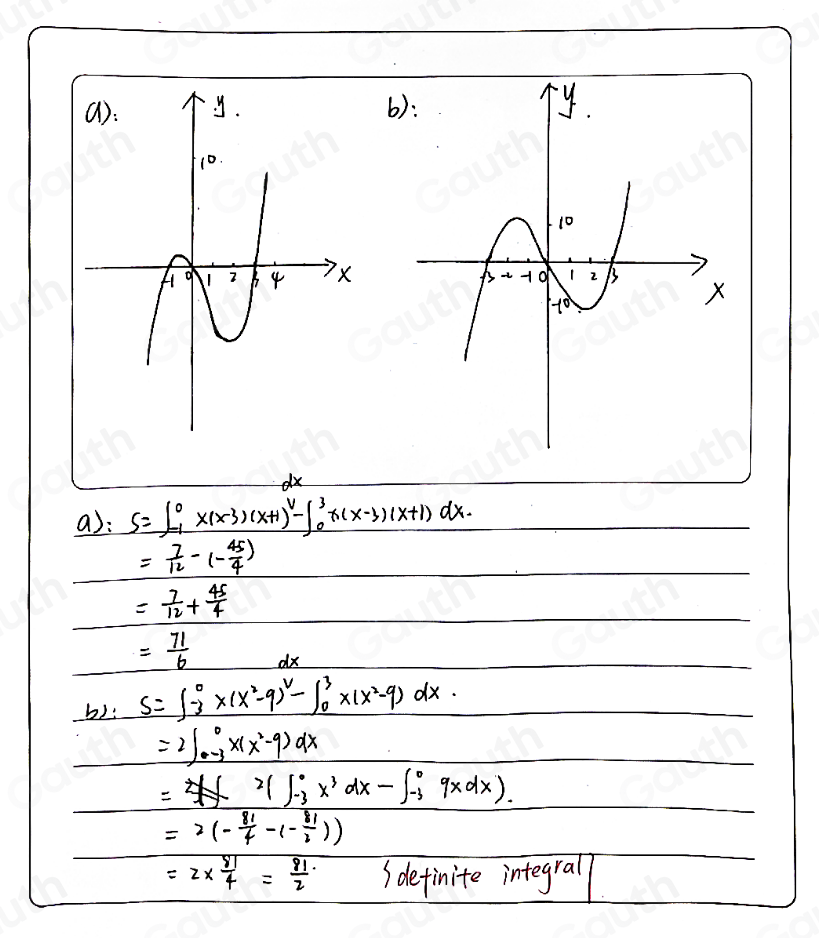 a): y. b): y.
10. 10
-1 0 1 2 3 4 x -3 -2 -1 0 1 2 3 x
-10.
a): S=∫_{-1}^{0} x(x-3)(x+1) dx - ∫_{0}^{3} x(x-3)(x+1) dx.
= 7/12 - (-45/4)
= 7/12 + 45/4
= 71/6
b): S= ∫_{-3}^{0} x(x²-9) dx - ∫_{0}^{3} x(x²-9) dx .
= 2∫_{-3}^{0} x(x²-9) dx
= 2( ∫_{-3}^{0} x³ dx - ∫_{-3}^{0} 9x dx ).
= 2(-81/4 - (-81/2))
= 2 x 81/4 = 81/2.
definite integral
Gauth